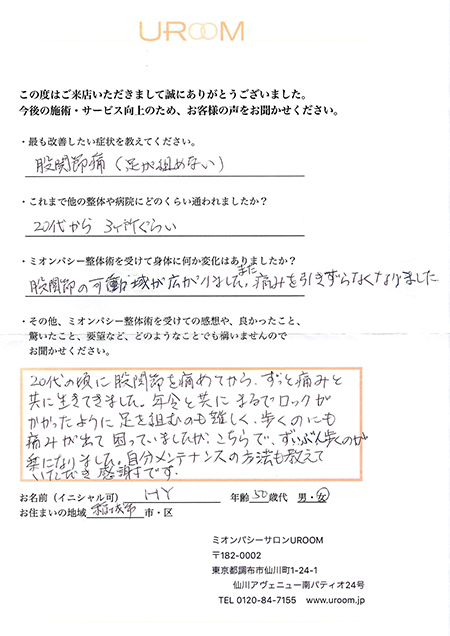 UROOM
この度はご来店いただきまして誠にありがとうございました。
今後の施術・サービス向上のため、お客様の声をお聞かせください。
・最も改善したい症状を教えてください。
股関節痛（足が組めない）
・これまで他の整体や病院にどのくらい通われましたか？
20代から 3ヶ所ぐらい
・ミオンパシー整体術を受けて身体に何か変化はありましたか？
股関節の可動域が広がりました。また痛みを引きずらなくなりました
・その他、ミオンパシー整体術を受けての感想や、良かったこと、
驚いたこと、要望など、どのようなことでも構いませんので
お聞かせください。
20代の頃に股関節を痛めてから、ずっと痛みと
共に生きてきました。年令と共にまるでロックが
かかったように足を組むのも難しく、歩くのにも
痛みが出て困っていましたが、こちらで、ずいぶん歩くのが
楽になりました。自分メンテナンスの方法も教えて
いただき感謝です。
お名前（イニシャル可） HY 年齢 50歳代 男・女
お住まいの地域 稲城市 市・区
ミオンパシーサロンUROOM
〒182-0002
東京都調布市仙川町1-24-1
仙川アヴェニュー南パティオ24号
TEL 0120-84-7155 www.uroom.jp